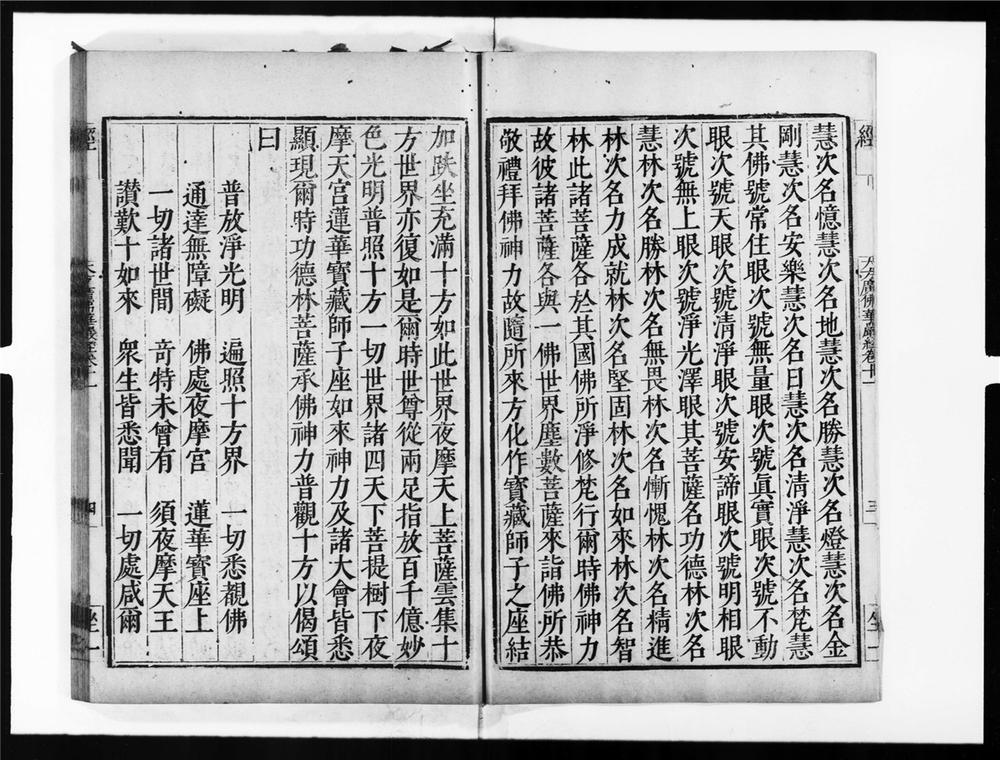 經
大方廣佛華嚴經卷十一
三
坐一
慧次名憶慧次名地慧次名勝慧次名燈慧次名金
剛慧次名安樂慧次名日慧次名清淨慧次名梵慧
其佛號常住眼次號無量眼次號眞實眼次號不動
眼次號天眼次號清淨眼次號安諦眼次號明相眼
次號無上眼次號淨光澤眼其菩薩名功德林次名
慧林次名勝林次名無畏林次名慚愧林次名精進
林次名力成就林次名堅固林次名如來林次名智
林此諸菩薩各於其國佛所淨修梵行爾時佛神力
故彼諸菩薩各與一佛世界塵數菩薩來詣佛所恭
敬禮拜佛神力故隨所來方化作寶藏師子之座結
加趺坐充滿十方如此世界夜摩天上菩薩雲集十
方世界亦復如是爾時世尊從兩足指放百千億妙
色光明普照十方一切世界諸四天下菩提樹下夜
摩天宮蓮華寶藏師子座如來神力及諸大會皆悉
顯現爾時功德林菩薩承佛神力普觀十方以偈頌
曰
普放淨光明 遍照十方界 一切悉覩佛
通達無障礙 佛處夜摩宮 蓮華寶座上
一切諸世間 竒特未曾有 須夜摩天王
讃歎十如來 衆生皆悉聞 一切處咸爾
經
四
坐一